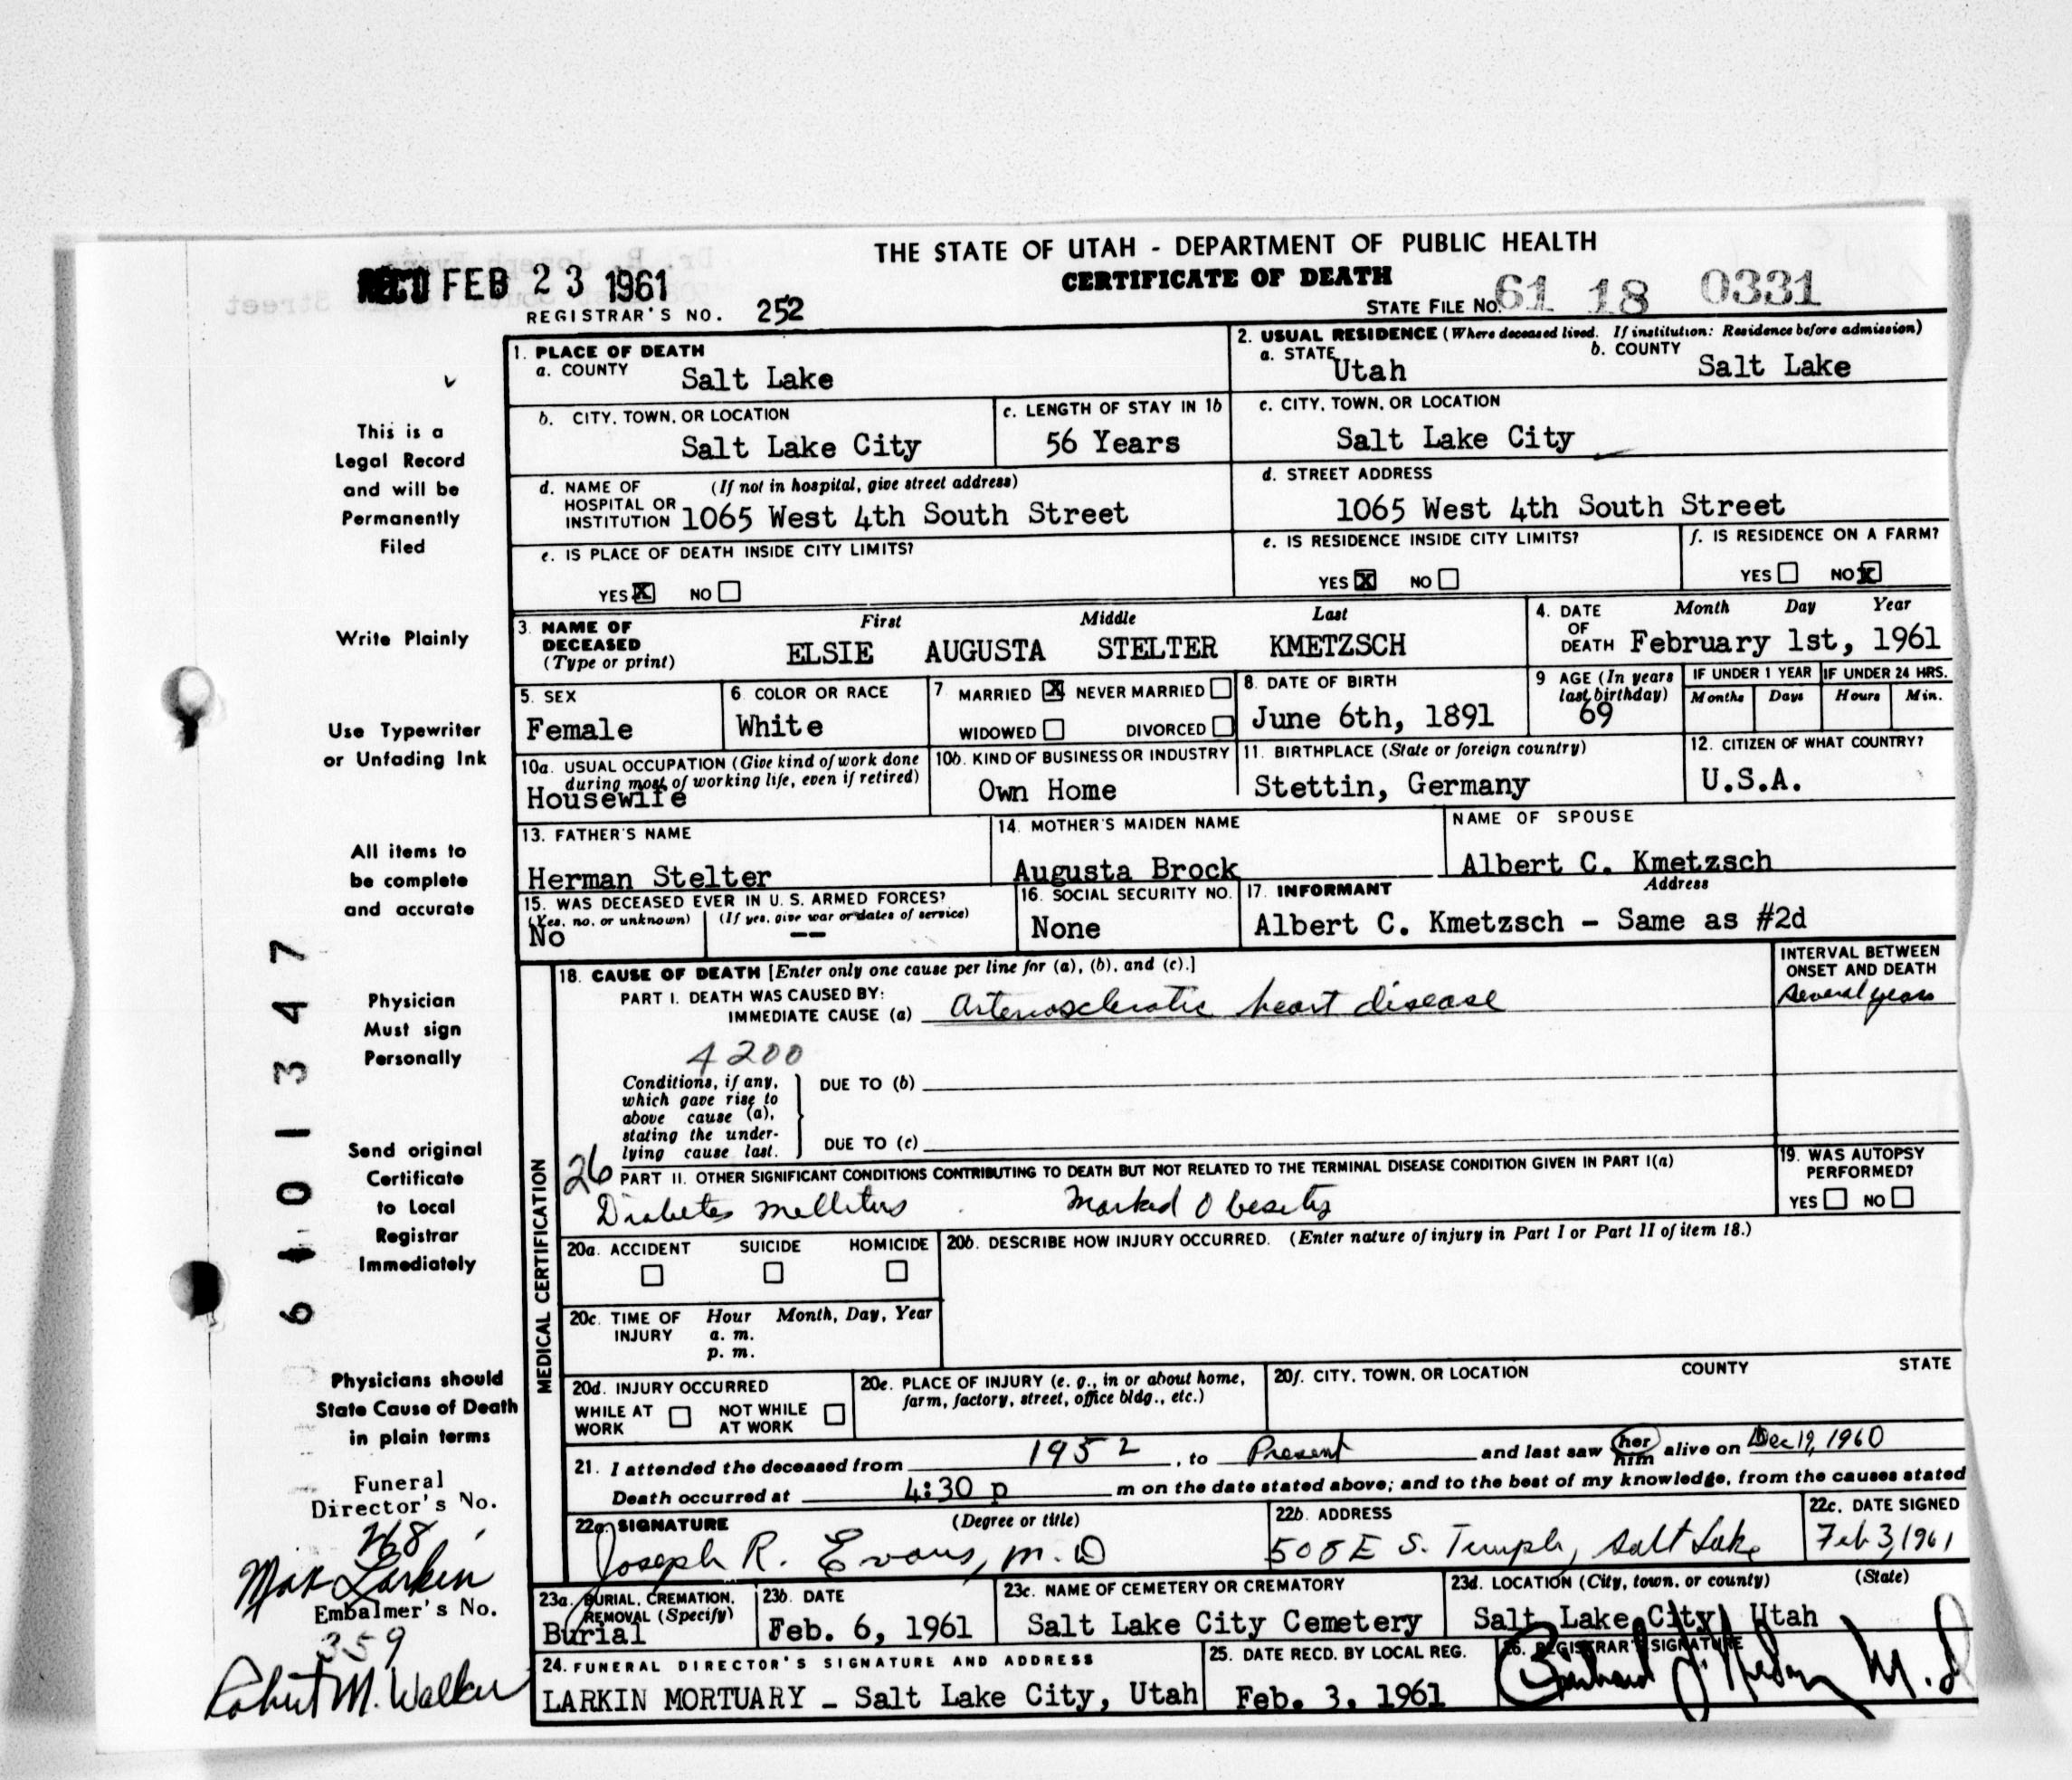 THE STATE OF UTAH - DEPARTMENT OF PUBLIC HEALTH
CERTIFICATE OF DEATH
REC'D FEB 23 1961
REGISTRAR'S NO. 252
STATE FILE NO. 61 18 0331
1. PLACE OF DEATH
a. COUNTY Salt Lake
2. USUAL RESIDENCE (Where deceased lived. If institution: Residence before admission)
a. STATE Utah b. COUNTY Salt Lake
b. CITY, TOWN, OR LOCATION Salt Lake City
c. LENGTH OF STAY IN 1b 56 Years
c. CITY, TOWN, OR LOCATION Salt Lake City
d. NAME OF HOSPITAL OR INSTITUTION (If not in hospital, give street address) 1065 West 4th South Street
d. STREET ADDRESS 1065 West 4th South Street
e. IS PLACE OF DEATH INSIDE CITY LIMITS?
YES X NO
e. IS RESIDENCE INSIDE CITY LIMITS?
YES X NO
f. IS RESIDENCE ON A FARM?
YES NO X
3. NAME OF DECEASED (Type or print) First Middle Last
ELSIE AUGUSTA STELTER KMETZSCH
4. DATE OF DEATH Month Day Year
February 1st, 1961
5. SEX Female
6. COLOR OR RACE White
7. MARRIED X NEVER MARRIED
WIDOWED DIVORCED
8. DATE OF BIRTH June 6th, 1891
9 AGE (In years last birthday) 69
IF UNDER 1 YEAR Months Days
IF UNDER 24 HRS. Hours Min.
10a. USUAL OCCUPATION (Give kind of work done during most of working life, even if retired) Housewife
10b. KIND OF BUSINESS OR INDUSTRY Own Home
11. BIRTHPLACE (State or foreign country) Stettin, Germany
12. CITIZEN OF WHAT COUNTRY? U.S.A.
13. FATHER'S NAME Herman Stelter
14. MOTHER'S MAIDEN NAME Augusta Brock
NAME OF SPOUSE Albert C. Kmetzsch
15. WAS DECEASED EVER IN U. S. ARMED FORCES?
(Yes, no, or unknown) (If yes, give war or dates of service)
No --
16. SOCIAL SECURITY NO. None
17. INFORMANT Address
Albert C. Kmetzsch - Same as #2d
MEDICAL CERTIFICATION
18. CAUSE OF DEATH [Enter only one cause per line for (a), (b), and (c).]
INTERVAL BETWEEN ONSET AND DEATH
PART I. DEATH WAS CAUSED BY:
IMMEDIATE CAUSE (a) Arteriosclerotic heart disease
Several years
4200
Conditions, if any, which gave rise to above cause (a), stating the underlying cause last.
DUE TO (b)
DUE TO (c)
26
PART II. OTHER SIGNIFICANT CONDITIONS CONTRIBUTING TO DEATH BUT NOT RELATED TO THE TERMINAL DISEASE CONDITION GIVEN IN PART I(a)
Diabetes mellitus Marked Obesity
19. WAS AUTOPSY PERFORMED?
YES NO
20a. ACCIDENT SUICIDE HOMICIDE
20b. DESCRIBE HOW INJURY OCCURRED. (Enter nature of injury in Part I or Part II of item 18.)
20c. TIME OF INJURY Hour Month, Day, Year
a. m.
p. m.
20d. INJURY OCCURRED
WHILE AT WORK NOT WHILE AT WORK
20e. PLACE OF INJURY (e. g., in or about home, farm, factory, street, office bldg., etc.)
20f. CITY, TOWN, OR LOCATION COUNTY STATE
21. I attended the deceased from 1952, to Present and last saw her him alive on Dec 19, 1960
Death occurred at 4:30 p m on the date stated above; and to the best of my knowledge, from the causes stated
22a. SIGNATURE (Degree or title)
Joseph R. Evans, M.D
22b. ADDRESS
508 E S. Temple, Salt Lake
22c. DATE SIGNED
Feb 3, 1961
23a. BURIAL, CREMATION, REMOVAL (Specify) Burial
23b. DATE Feb. 6, 1961
23c. NAME OF CEMETERY OR CREMATORY Salt Lake City Cemetery
23d. LOCATION (City, town, or county) (State)
Salt Lake City, Utah
24. FUNERAL DIRECTOR'S SIGNATURE AND ADDRESS
LARKIN MORTUARY - Salt Lake City, Utah
25. DATE RECD. BY LOCAL REG. Feb. 3, 1961
26. REGISTRAR'S SIGNATURE
M.D
This is a
Legal Record
and will be
Permanently
Filed
Write Plainly
Use Typewriter
or Unfading Ink
All items to
be complete
and accurate
Physician
Must sign
Personally
Send original
Certificate
to Local
Registrar
Immediately
Physicians should
State Cause of Death
in plain terms
Funeral
Director's No.
268
Max Larkin
Embalmer's No.
359
Robert M. Walker
6 1 0 1 3 4 7